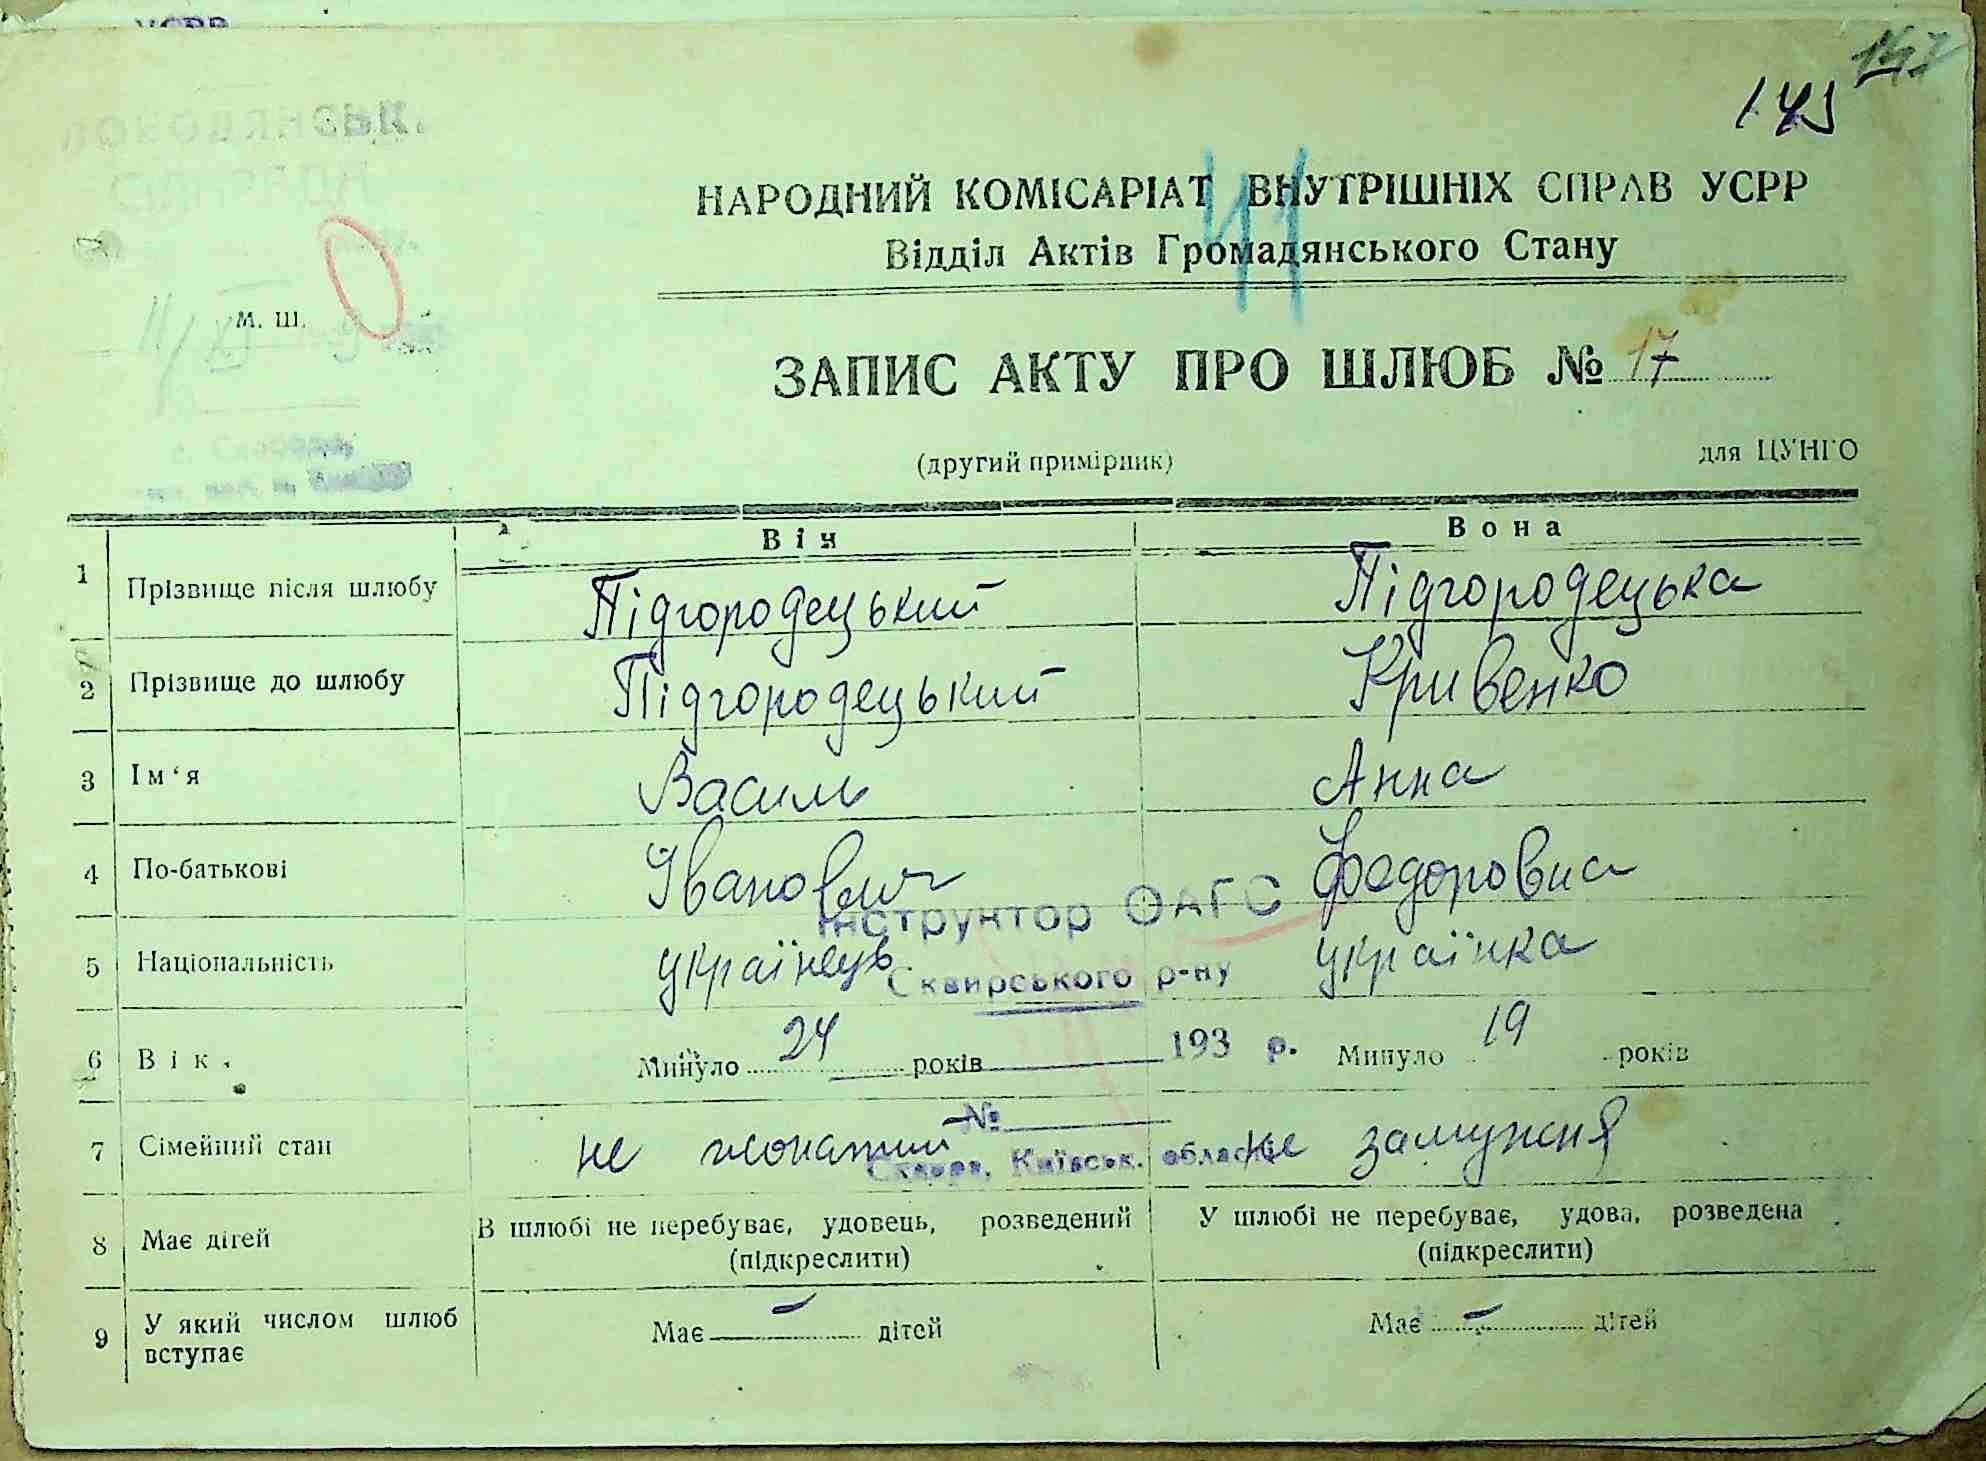 УСРР
147
145
НАРОДНИЙ КОМІСАРІАТ ВНУТРІШНІХ СПРАВ УСРР
41
Відділ Актів Громадянського Стану
М. Ш.
ЗАПИС АКТУ ПРО ШЛЮБ № 17
(другий примірник) для ЦУНГО
Він Вона
1 Прізвище після шлюбу Підгородецький Підгородецька
2 Прізвище до шлюбу Підгородецький Кривенко
3 Ім'я Василь Анна
4 По-батькові Іванович Федоровна
Інструктор ОАГС
5 Національність українець українка
Сквирського р-ну
6 Вік. Минуло 24 років 193 р. Минуло 19 років
№
7 Сімейний стан не жонатий не замужня
Сквира, Київськ. област
8 Має дітей В шлюбі не перебуває, удовець, розведений (підкреслити) У шлюбі не перебуває, удова, розведена (підкреслити)
9 У який числом шлюб вступає Має – дітей Має – дітей